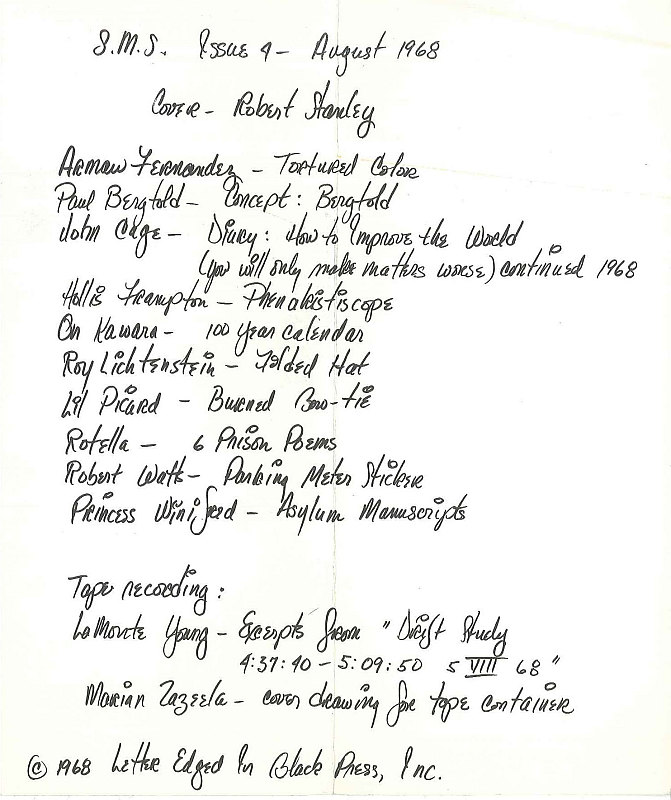 S.M.S. Issue 4 - August 1968
Cover - Robert Stanley
Arman Fernandez - Tortured Color
Paul Bergtold - Concept: Bergtold
John Cage - Diary: How to Improve the World
(you will only make matters worse) continued 1968
Hollis Frampton - Phenakistiscope
On Kawara - 100 Year Calendar
Roy Lichtenstein - Folded Hat
Lil Picard - Burned Bow-tie
Rotella - 6 Prison Poems
Robert Watts - Parking Meter Sticker
Princess Winifred - Asylum Manuscripts
Tape recording:
LaMonte Young - Excerpts from "Drift Study
4:37:40 - 5:09:50 5 VIII 68"
Marian Zazeela - cover drawing for tape container
© 1968 Letter Edged In Black Press, Inc.